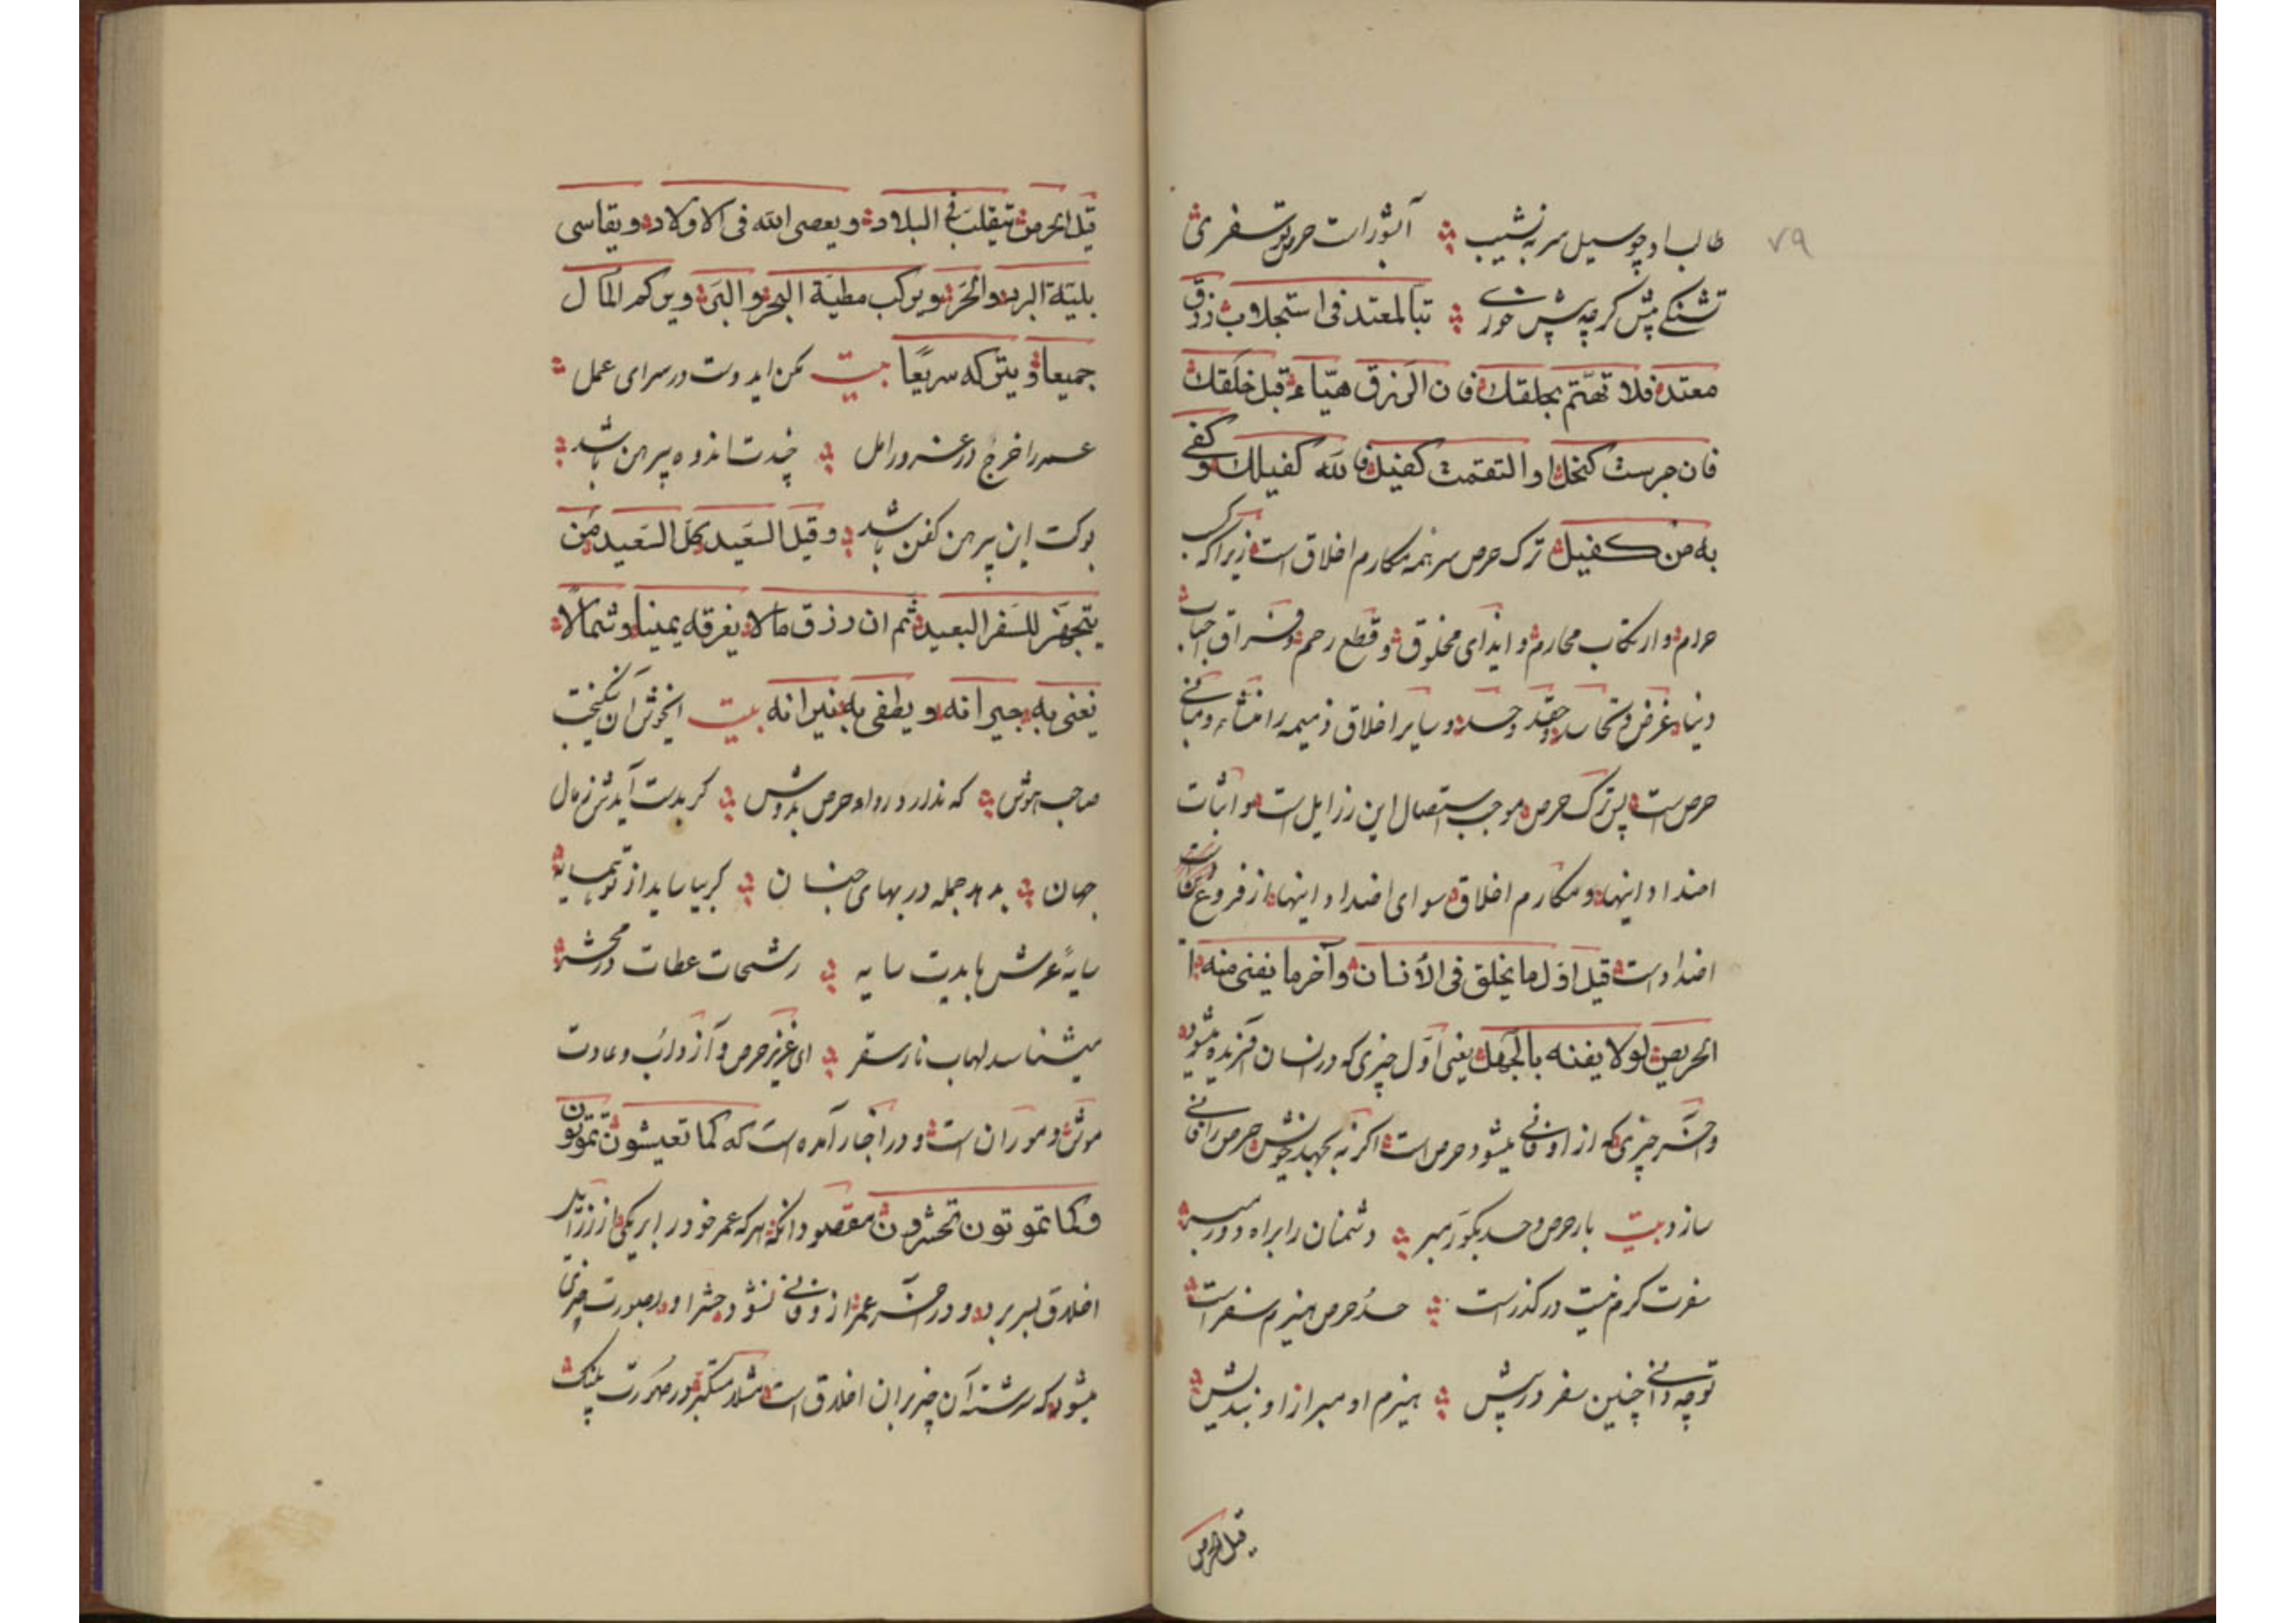 ۷۹
طالب او چو سیل سر به نشیب آبشور است حرص تو سفری
تشنگی بیش گر چه بیش خوری تبا لمعتد فی استجلاب رزق
معتد فلا تهتم بحلقك فان الرزق هیّاء قبل خلقك
فان حرست كنخل او التقمت كفیل فالله كفیلك و كفی
به من كفیل ترک حرص سر همه مکارم اخلاق است زیرا که کسب
حرام و ارتکاب محارم و ایذای مخلوق و قطع رحم و فراق احباب
دنیا و غرض و تحاسد و حقد و حسد و سایر اخلاق ذمیمه را منشاء و مبانی
حرص است پس ترک حرص موجب استیصال این رزایل است و اثبات
اضداد اینها و مکارم اخلاق سوای اضداد اینها از فروع
اضداد است قیل اول ما یخلق فی الأنسان و آخر ما یفنی منه
الحریص لولا یفنه بالجهل یعنی اوّل چیزی که در انسان آفریده میشود
و آخر چیزی که از او فانی میشود حرص است اگر نه بجهد خویش حرص را فانی
سازد بیت بار حرص و حسد بگور مبر دشمنان را براه دور مبر
سفرت کرم نیست در گذر است حسد و حرص هیزم سقر است
تو چه دانی چنین سفر در پیش هیزم او مبر از او بندیش
قیل الحرص
قیل الحرص یتقلب فی البلاد و یعصی الله فی الاولاد و یقاسی
بلیّة البرد و الحرّ و یرکب مطیّة البحر و البرّ و یرکم المال
جمیعا و یترکه سریعًا بیت مکن ایدوست در سرای عمل
عمر را خرج در غرور امل چندت اندوه پیرهن باشد
بو کت این پیرهن کفن باشد و قیل السّعید کل السّعید من
یتجهّز للسّفر البعید ثم ان رزق مالا یفرقه یمینا و شمالًا
یغنی به جیرانه و یطفی به نیرانه بیت ایخوش آن نیکبخت
صاحب هوش که ندارد رداء حرص بدوش گر بدست آیدش ز مال
جهان بدهد جمله در بهای جنان گر بیاساید از تو همسایه
سایهٔ عرش بایدت سایه رشحات عطات در محشر
میشناسد لهاب نار سقر ای عزیز حرص و آز داب و عادت
موش و موران است و در اخبار آمده است که کما تعیشون تموتون
و کما تموتون تحشرون مقصود آنکه هر که عمر خود را بر یکی از رزاید
اخلاق بسر برد و در آخر عمر از او فانی نشود حشر او بصورت چیزی
میشود که سرشته آن چیز بران اخلاق است مثلا متکبر در صورت پلنگ